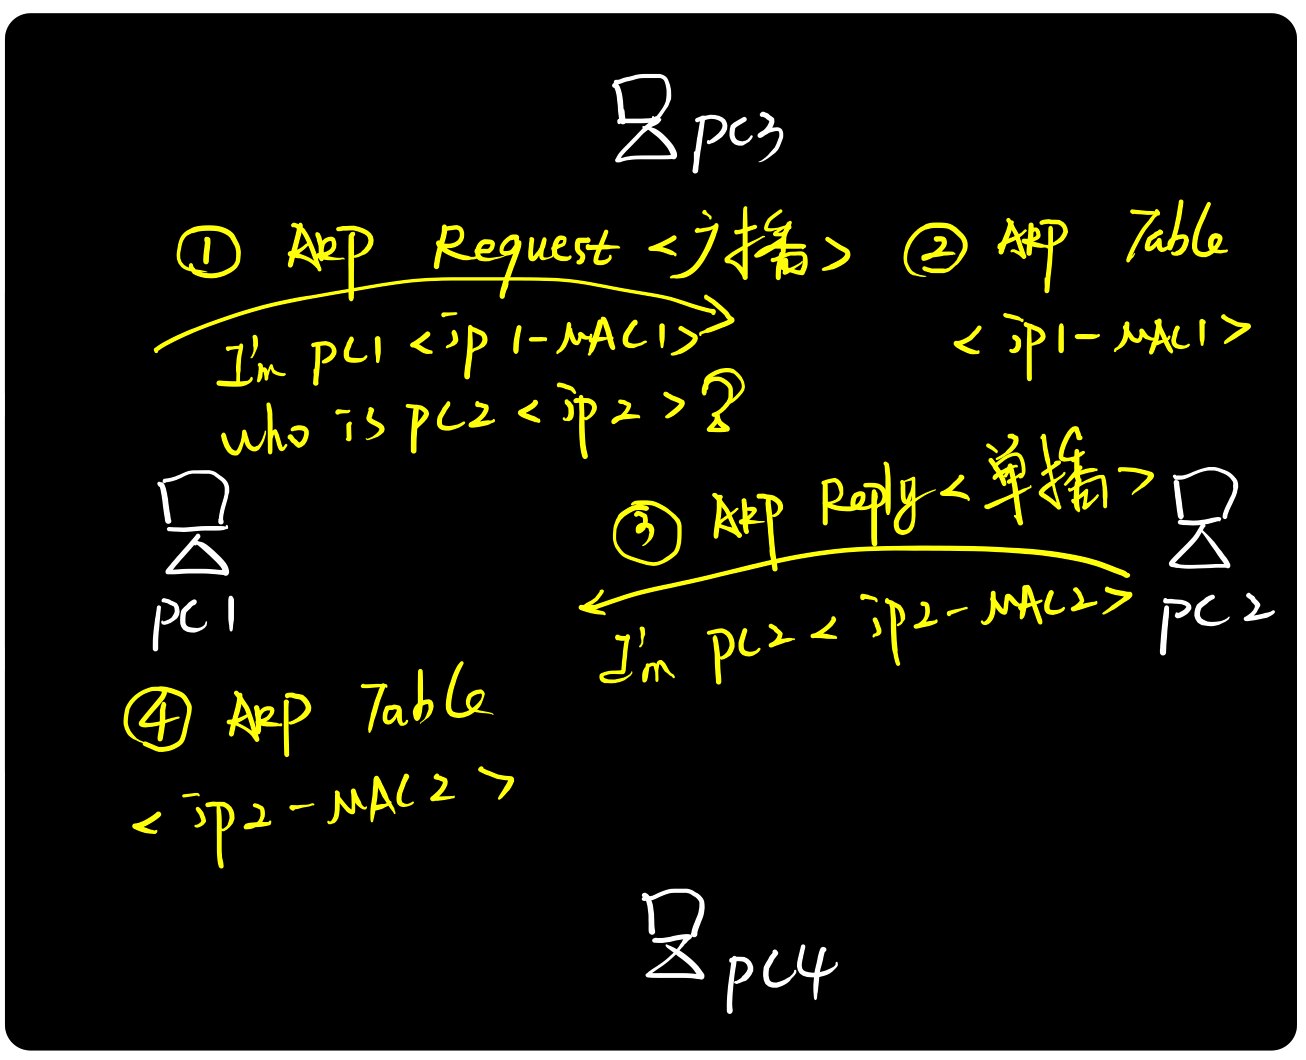 PC3
① ARP Request <广播>
I'm PC1 <ip1-MAC1>
who is PC2 <ip2>?
② ARP Table
<ip1-MAC1>
③ ARP Reply <单播>
I'm PC2 <ip2-MAC2>
PC1
PC2
④ ARP Table
<ip2-MAC2>
PC4